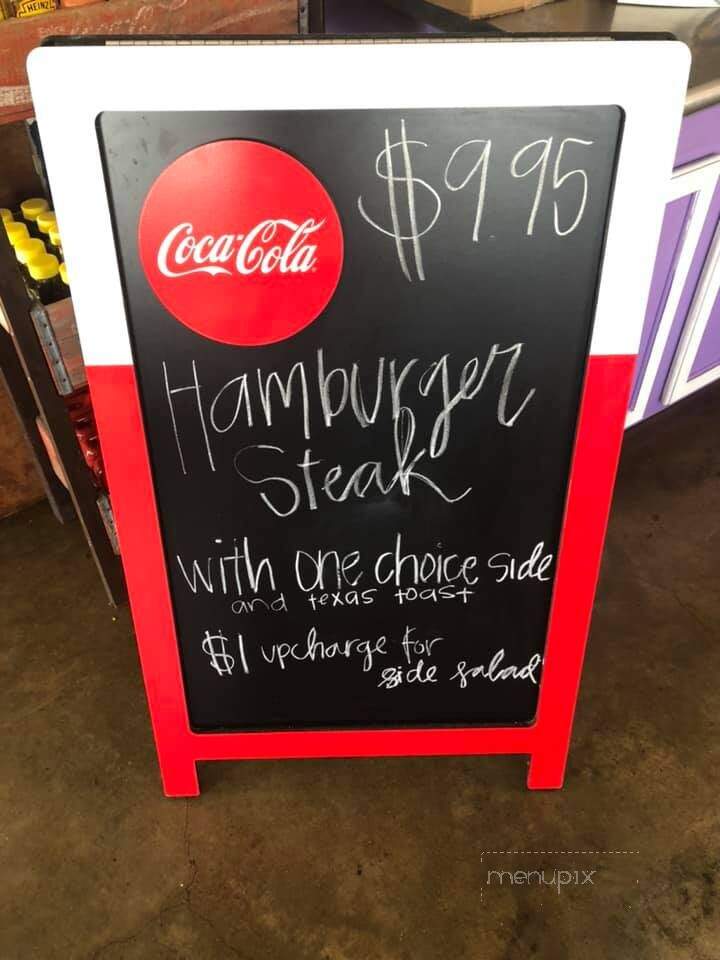 HEINZ
Coca-Cola
$9.95
Hamburger
Steak
with one choice side
and texas toast
$1 upcharge for
side salad
menupix